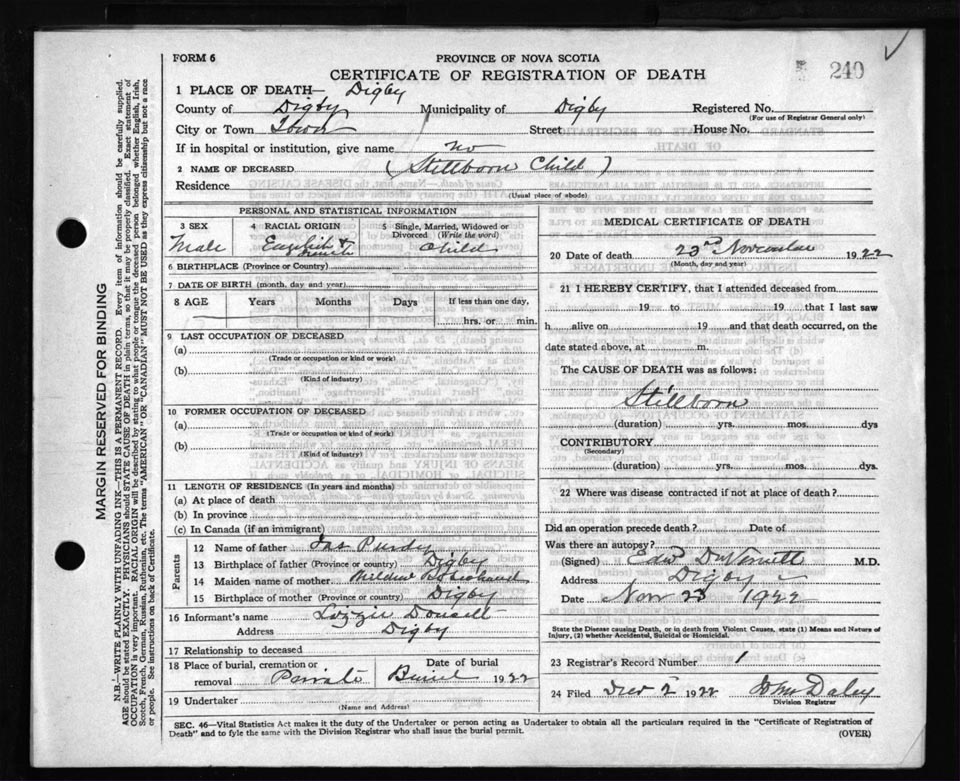 FORM 6
PROVINCE OF NOVA SCOTIA
CERTIFICATE OF REGISTRATION OF DEATH
240
1 PLACE OF DEATH— Digby
County of Digby Municipality of Digby Registered No.
(For use of Registrar General only)
City or Town Town Street House No.
If in hospital or institution, give name no
2 NAME OF DECEASED (Stillborn Child)
Residence
(Usual place of abode)
PERSONAL AND STATISTICAL INFORMATION
3 SEX 4 RACIAL ORIGIN 5 Single, Married, Widowed or Divorced (Write the word)
Male English & Child
6 BIRTHPLACE (Province or Country)
7 DATE OF BIRTH (month, day and year)
8 AGE Years Months Days If less than one day,
hrs. or min.
9 LAST OCCUPATION OF DECEASED
(a)
(Trade or occupation or kind or work)
(b)
(Kind of industry)
10 FORMER OCCUPATION OF DECEASED
(a)
(Trade or occupation or kind of work)
(b)
(Kind of industry)
11 LENGTH OF RESIDENCE (In years and months)
(a) At place of death
(b) In province
(c) In Canada (if an immigrant)
Parents
12 Name of father Jas Purdy
13 Birthplace of father (Province or country) Digby
14 Maiden name of mother
15 Birthplace of mother (Province or country) Digby
16 Informant's name Lizzie
Address Digby
17 Relationship to deceased
18 Place of burial, cremation or removal Private Date of burial 1922
19 Undertaker
(Name and Address)
MEDICAL CERTIFICATE OF DEATH
20 Date of death 23rd November 1922
(Month, day and year)
21 I HEREBY CERTIFY, that I attended deceased from
19 to 19 that I last saw
h alive on 19 and that death occurred, on the
date stated above, at m.
The CAUSE OF DEATH was as follows:
Stillborn
(duration) yrs. mos. dys
CONTRIBUTORY
(Secondary)
(duration) yrs. mos. dys.
22 Where was disease contracted if not at place of death?
Did an operation precede death? Date of
Was there an autopsy?
(Signed) M.D.
Address Digby
Date Nov 23 1922
State the Disease causing Death, or in death from Violent Causes, state (1) Means and Nature of
Injury, (2) whether Accidental, Suicidal or Homicidal.
23 Registrar's Record Number 1
24 Filed Dec 2 1922 John Daley
Division Registrar
SEC. 46—Vital Statistics Act makes it the duty of the Undertaker or person acting as Undertaker to obtain all the particulars required in the "Certificate of Registration of
Death" and to fyle the same with the Division Registrar who shall issue the burial permit.
(OVER)
MARGIN RESERVED FOR BINDING
N.B.—WRITE PLAINLY WITH UNFADING INK—THIS IS A PERMANENT RECORD. Every item of information should be carefully supplied.
AGE should be stated EXACTLY. PHYSICIANS should STATE CAUSE OF DEATH in plain terms, so that it may be properly classified. Exact statement of
OCCUPATION is very important. RACIAL ORIGIN will be described by stating to what people or tongue the deceased person belonged whether English, Irish,
Scotch, French, German, Russian, Ruthenian, etc. The terms "AMERICAN" OR "CANADIAN" MUST NOT BE USED as they express citizenship but not a race
or people. See instructions on back of Certificate.